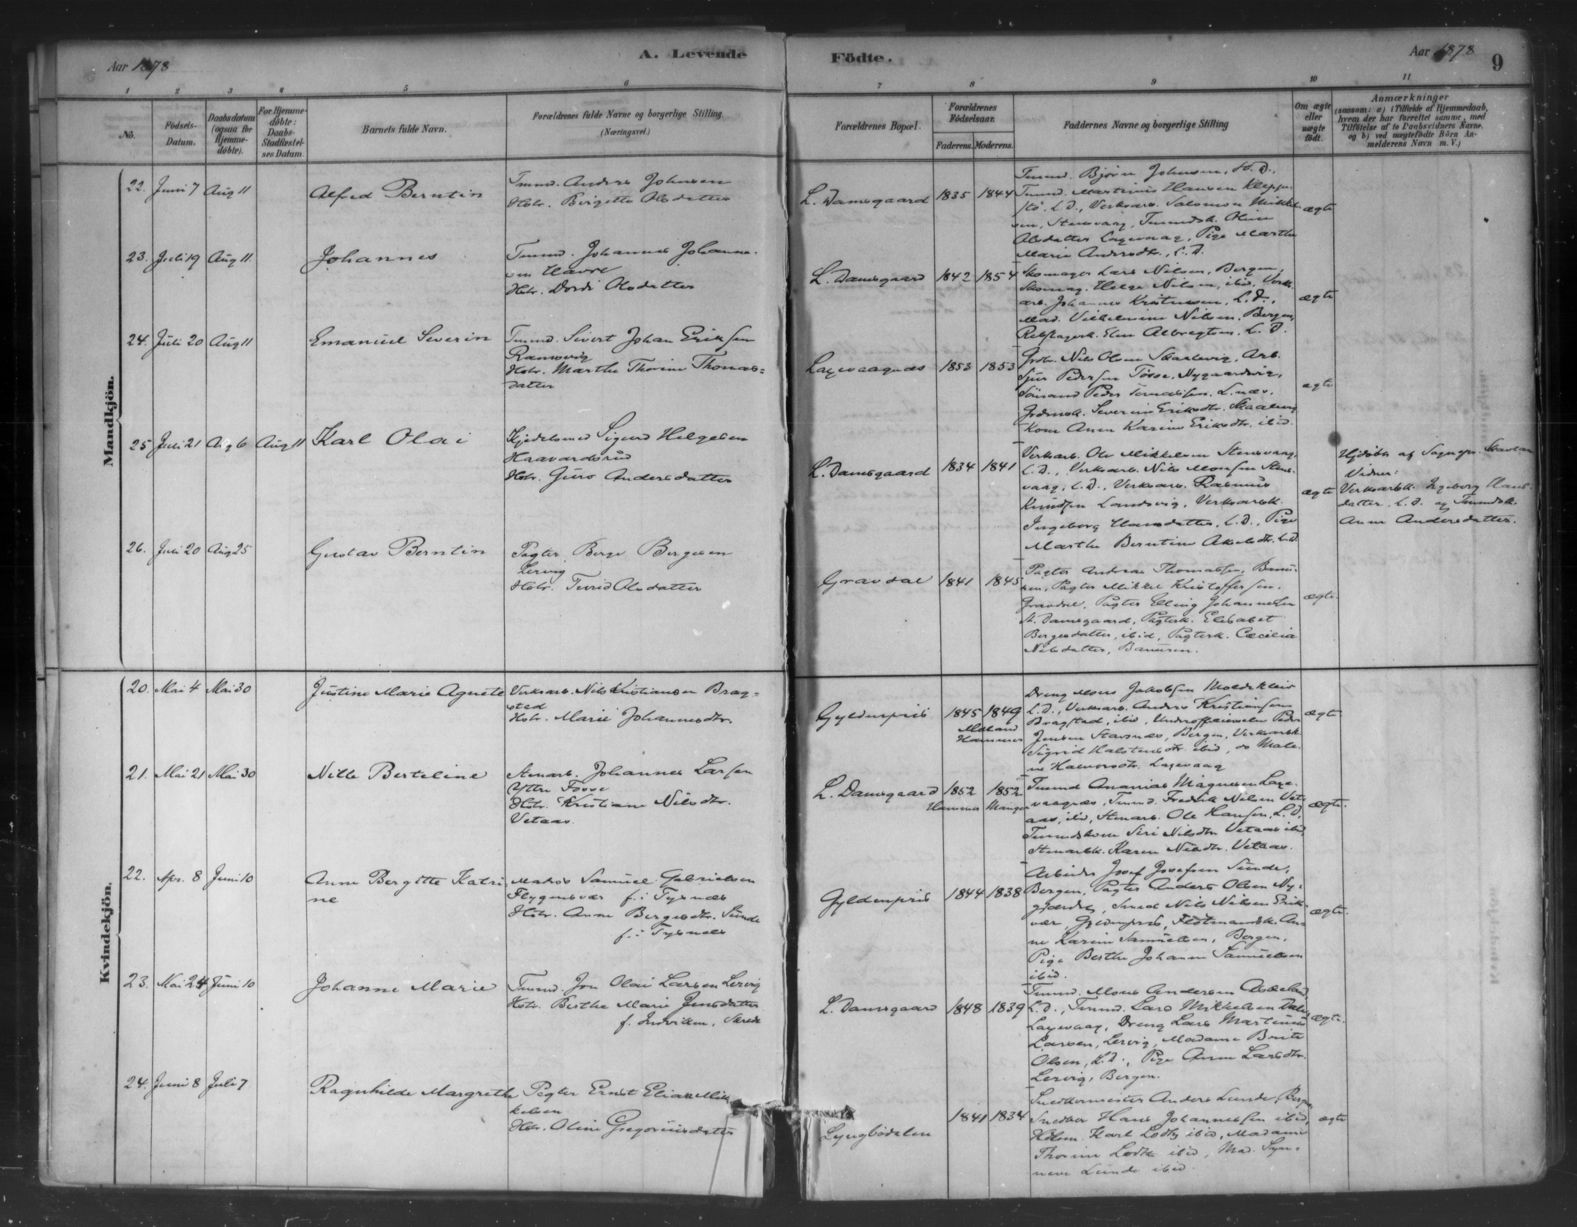 Aar 1878
A. Levende
Födte.
Aar 1878
9
1 2 3 4 5 6 7 8 9 10 11
No.
Födsels-
Datum.
Daabsdatum
(ogsaa for
Hjemme-
döbte).
For Hjemme-
döbte:
Daabs-
Stadfæstel-
ses Datum
Barnets fulde Navn.
Forældrenes fulde Navne og borgerlige Stilling
(Næringsvei.)
Forældrenes Bopæl.
Forældrenes
Födselsaar.
Faderens. Moderens.
Faddernes Navne og borgerlige Stilling
Om ægte
eller
uægte
født.
Anmærkninger
(saasom: a) i Tilfælde af Hjemmedaab,
hvem der har forrettet samme, med
Tilföielse af to Daabsvidners Navne,
og b) ved uægtefödte Börn An-
melderens Navn m. V.)
Mandkjön.
22. Juni 7 Aug 11
Alfred Berntin
Tmmd. Anders Johnsen
Hstr. Birgitte Olsdatter
L. Damsgaard 1835 1844
Tmmd. Bjørn Johnsen, L. D.,
Tmmd. Martinus Hansen Klepp-
stø, L. D., Verksarb. Salomon Mikkel-
sen, Stensvaag, Tmmdsk. Oline
Olsdatter Laxevaag, Pige Marthe
Marie Andersdtr., L. D.
ægte
23. Juli 19 Aug 11
Johannes
Tmmd. Johannes Johanne-
sen
Hstr. Dordi Olsdatter
L. Damsgaard 1842 1854
Skomager Lars Nilsen, Bergen,
Skomag. Helge Nilsen, ibid, Verks-
arb. Johannes Kristensen, L. D.,
Mad. Vilhelmine Nilsen, Bergen,
Elen Albregtsen, L. D.
ægte
24. Juli 20 Aug 11
Emanuel Severin
Tmmd. Sivert Johan Eriksen
Hstr. Marthe Thorine Thomas-
datter
Laxevaagnæs 1853 1853
Nils Olsen Skaalevig, Arb.
Sjur Pedersen Tøsse, Nygaardsvig,
Peder Tornæssen, L.næs,
Severine Eriksdtr. Skaalevig
Kone Anna Karine Eriksdtr. ibid.
ægte
25 Juli 21 Aug 6 Aug 11
Karl Olai
Kjedelsmed Sigurd Helgesen
Haavardsrud
Hstr. Guro Andersdatter
L. Damsgaard 1834 1841
Verksarb. Ole Mikkelsen Stensvaag,
L. D., Verksarb. Nils Monsen Stens-
vaag, L. D., Verksarb. Rasmus
Knudsen Landsvig, Verksarbsk.
Ingeborg Hansdatter, L. D., Pige
Marthe Berntine Akselsdtr. L.D
ægte
Hjdøbt af Sognepr.
Vidner:
Verksarbsk. Ingeborg Hans-
datter, L. D. og Tmmdsk.
Anna Andersdatter.
26. Juli 20 Aug 25
Gustav Berntin
Pagter Berge Bergesen
Lervig
Hstr. Turid Olsdatter
Gravdal 1841 1845
Pagter Andreas Thomassen,
Pagter Mikkel Kristoffersen,
Gravdal, Pagter Elling Johannesen
St. Damsgaard, Pagtersk. Elisabet
Bergesdatter, ibid, Pagtersk. Cecilia
Nilsdatter,
ægte
Kvindekjön.
20. Mai 4 Mai 30
Justine Marie Agnete
Verksarb. Nils Kristiansen Brag-
stad
Hstr. Marie Johannesdtr.
Gyldenpris 1845 1849
Hammer
Dreng Mons Jakobsen Moldekleiv
L. D., Verksarb. Anders Kristiansen
Bragstad, ibid, Underofficierselev Peder
Jensen Stavnæs, Bergen, Verksarbsk
Sigrid Halstensdtr. ibid, do Male-
ne Halvorsdtr. Laxevaag
ægte
21. Mai 21 Mai 30
Nille Berteline
Stenarb. Johannes Larsen
Ytre Fosse
Hstr. Kristiane Nilsdtr.
Vetaas
L. Damsgaard 1852 1852
Hammer Manger
Tmmd Ananias Magnusen Laxe-
vaagnæs, Tmmd. Fredrik Nilsen Vet-
aas, ibid, Stenarb. Ole Hansen, L. D.,
Tmmdskone Siri Nilsdtr Vetaas ibid,
Stenarbsk. Karen Nilsdtr. Vetaas.
ægte.
22. Apr. 8 Juni 10
Anne Bergitte Katri
ne
Matros Samuel Gabrielsen
Flygansvær f. i Tysnæs
Hstr. Anne Bergesdtr. Sunde
f. i Tysnæs
Gyldenpris 1844 1838
Arbeider Josef Josefsen Sunde,
Bergen, Pagter Anders Olsen Ny-
gjærdet, Smed Nils Nilsen Erik-
vær, Gyldenpris, An-
ne Karine Samuelsen, Bergen,
Pige Berthe Johanne Samuelsen
ibid.
ægte.
23. Mai 24 Juni 10
Johanne Marie
Tmmd. Jon Olai Larsen Lervig
Hstr. Berthe Marie Jensdatter
f. Indviken,
L. Damsgaard 1848 1839
Tmmd. Mons Andersen Askeland
L. D., Tmmd. Lars Mikkelsen
Laxevaag, Dreng Lars Martinus
Larsen, Lervig, Madame Brite
Olsen, L. D., Pige Anna Larsdtr.
Lervig, Bergen.
ægte.
24. Juni 8 Juli 7
Ragnhilde Margrethe
Pagter Ernst Elias Mik-
kelsen
Hstr. Oline Gregoriusdatter
Lyngbødalen 1841 1834
Snedkermester Anders Lunde, Bergen
Snedker Hans Johannessen ibid,
Karl Lothe ibid, Madame
Thorine Lothe ibid, Mad. Syn-
neve Lunde ibid.
ægte